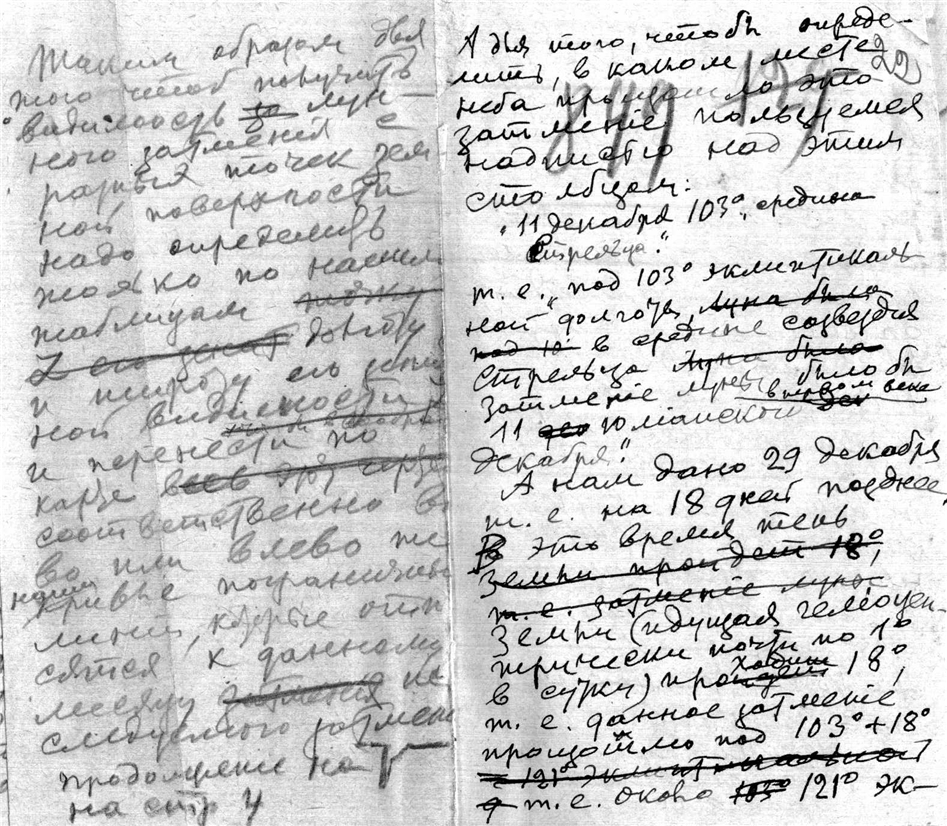 Таким образом для
того чтоб получить
видимость за лун-
ного затмения с
разных точек зем
ной поверхности
надо определить
только по нашим
таблицам
долготу
и широту его
ной видимости
и перенести по
карте всев эту
соответственно в
во или влево
наши
кривые пограничные
линии, которые отн
сятся к данному
месяцу затмения
следуемого затмен
продолжение на
на стр 4
А для того, чтобы опреде-
лить, в каком месте
22
неба произошло это
затмение пользуемся
надписью над этим
столбцом:
"11 декабря 103°, средина
Стрельца."
т. е. "под 103° эклиптикаль
ной долготы, луна была
под 10 в средине созвездия
Стрельца луна была
затмение луны было бы
в первом веке
11 юлианской
декабря".
А нам дано 29 декабря
т. е. на 18 дней позднее.
В это время тень
земли пройдет 18°,
т. е. затмение луны
земли (идущая гелиоцен-
трически почти по 1°
в сутки) проходит 18°,
т. е. данное затмение
произошло под 103° + 18°
= 121° эклиптикальной
т. е. около 103° 121° эк-